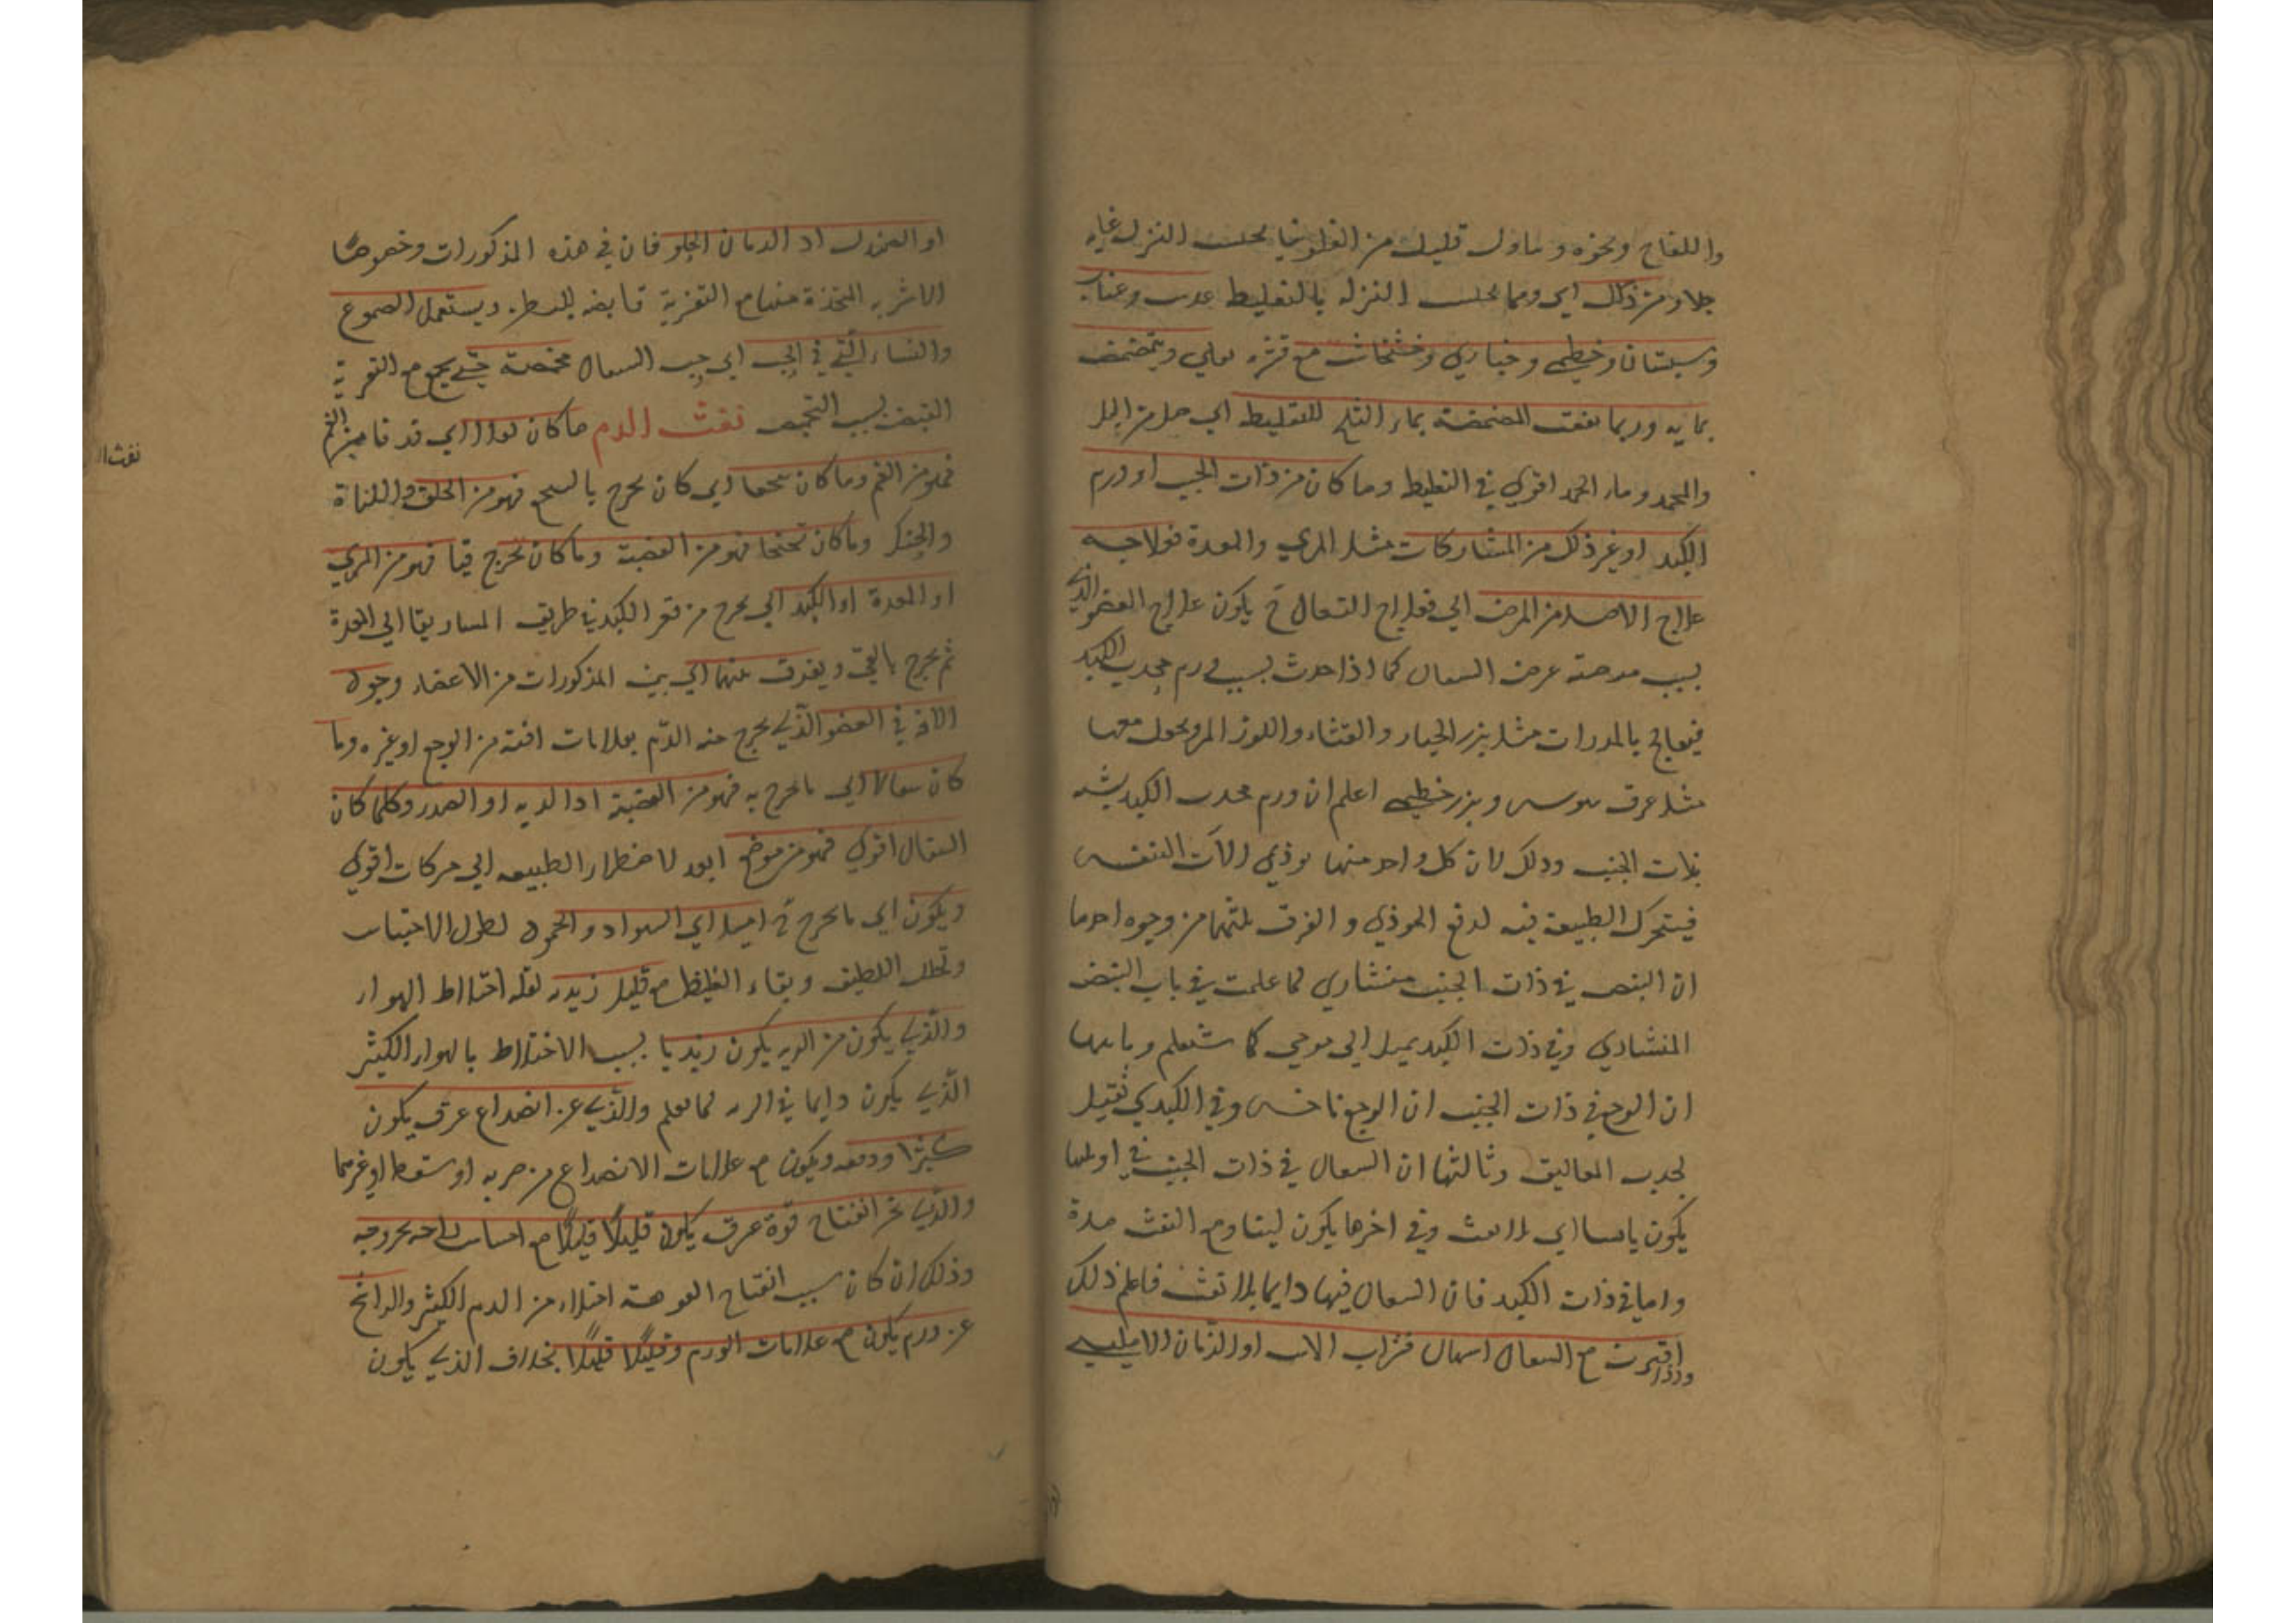 واللفاح ونحوه وتناول قليل من الفلونيا يحبس النزل غايه
جلاد من ذلك اي ومما يحبس النزله بالتغليط عدس وعناب
وسبستان وخطمي وخبازي وخشخاش مع قشره يغلي ويتمضمض
بمايه وربما نفعت المضمضة بماء الثلج للتغليط اي حل من الجل
والمجمد وماء الجمد اقوي في التغليط وما كان من ذات الجنب او ورم
الكبد او غير ذلك من المشاركات مثل المري والمعدة فولاجه
علاج الاصل من المرض اي فعلاج السعال ح يكون علاج العضو الذي
بسبب مرضه عرض السعال كما اذا حدث بسبب ورم محدب الكبد
فيعالج بالمدرات مثل بزر الخيار والقثاء واللوز المر ويجعل معها
مثل عرق سوس وبزر خطمي اعلم ان ورم محدب الكبد يشبه
بذات الجنب وذلك لان كل واحد منهما يوذي الات التنفس
فيتحرك الطبيعة فيه لدفع الموذي والفرق بينهما من وجوه احدها
ان النبض في ذات الجنب منشاري لما علمت في باب النبض
المنشاري وفي ذات الكبد يميل الي موجي كما ستعلم وثانيها
ان الوجع في ذات الجنب ان الوجع ناخس وفي الكبدي ثقيل
لجذب المعاليق وثالثها ان السعال في ذات الجنب في اولها
يكون يابسا اي بلا نفث وفي اخرها يكون لينا ومع النفث مدة
واما في ذات الكبد فان السعال فيها دايما بلا نفث فاعلم ذلك
واذا اقترن مع السعال اسهال فشراب الاس او الرمان الامليسي
او الصندل او الرمان الحلو فان في هذه المذكورات وخصوصا
الاشربه المتخذة منها مع التغرية قابضه للبطن ويستعمل الصموغ
والنشاء التي في الحب اي حب السعال محمصة حتي يجمع مع التغرية
القبض بسبب التحميص نفث الدم ما كان تفلا اي قد قا من الفم
فهو من الفم وما كان تنحعا اي كان يخرج بالتنحع فهو من الحلق واللهاة
والحنك وما كان تنحنحا فهو من القصبة وما كان يخرج قيا فهو من المري
او المعدة او الكبد اي يخرج من قعر الكبد في طريق الماساريقا الي المعدة
ثم يخرج بالقي ويفرق بينها اي بين المذكورات من الاعضاء وجود
الافة في العضو الذي يخرج منه الدم بعلامات افته من الوجع او غيره وما
كان سعالا اي ما يخرج به فهو من القصبة او الريه او الصدر وكلما كان
السعال اقوي فهو من موضع ابعد لاضطرار الطبيعه الي حركات اقوي
ويكون اي ما يخرج ح اميل اي السواد والجمود لطول الاحتباس
وتحلل اللطيف وبقاء الغليظ مع قليل زبديه لقلة اختلاط الهواء
والذي يكون من الريه يكون زبديا بسبب الاختلاط بالهواء الكثير
الذي يكون دايما في الريه لما تعلم والذي عن انصداع عرق يكون
كثيرا ودفعه ويكون مع علامات الانصداع من ضربه او سقطه او غيرهما
والذي عن انفتاح فوة عرق يكون قليلا قليلا مع احساس راحه بخروجه
وذلك ان كان سبب انفتاح الفوهة امتلاء من الدم الكثير والراشح
عن ورم يكون مع علامات الورم وقليلا قليلا بخلاف الذي يكون
نفث ا